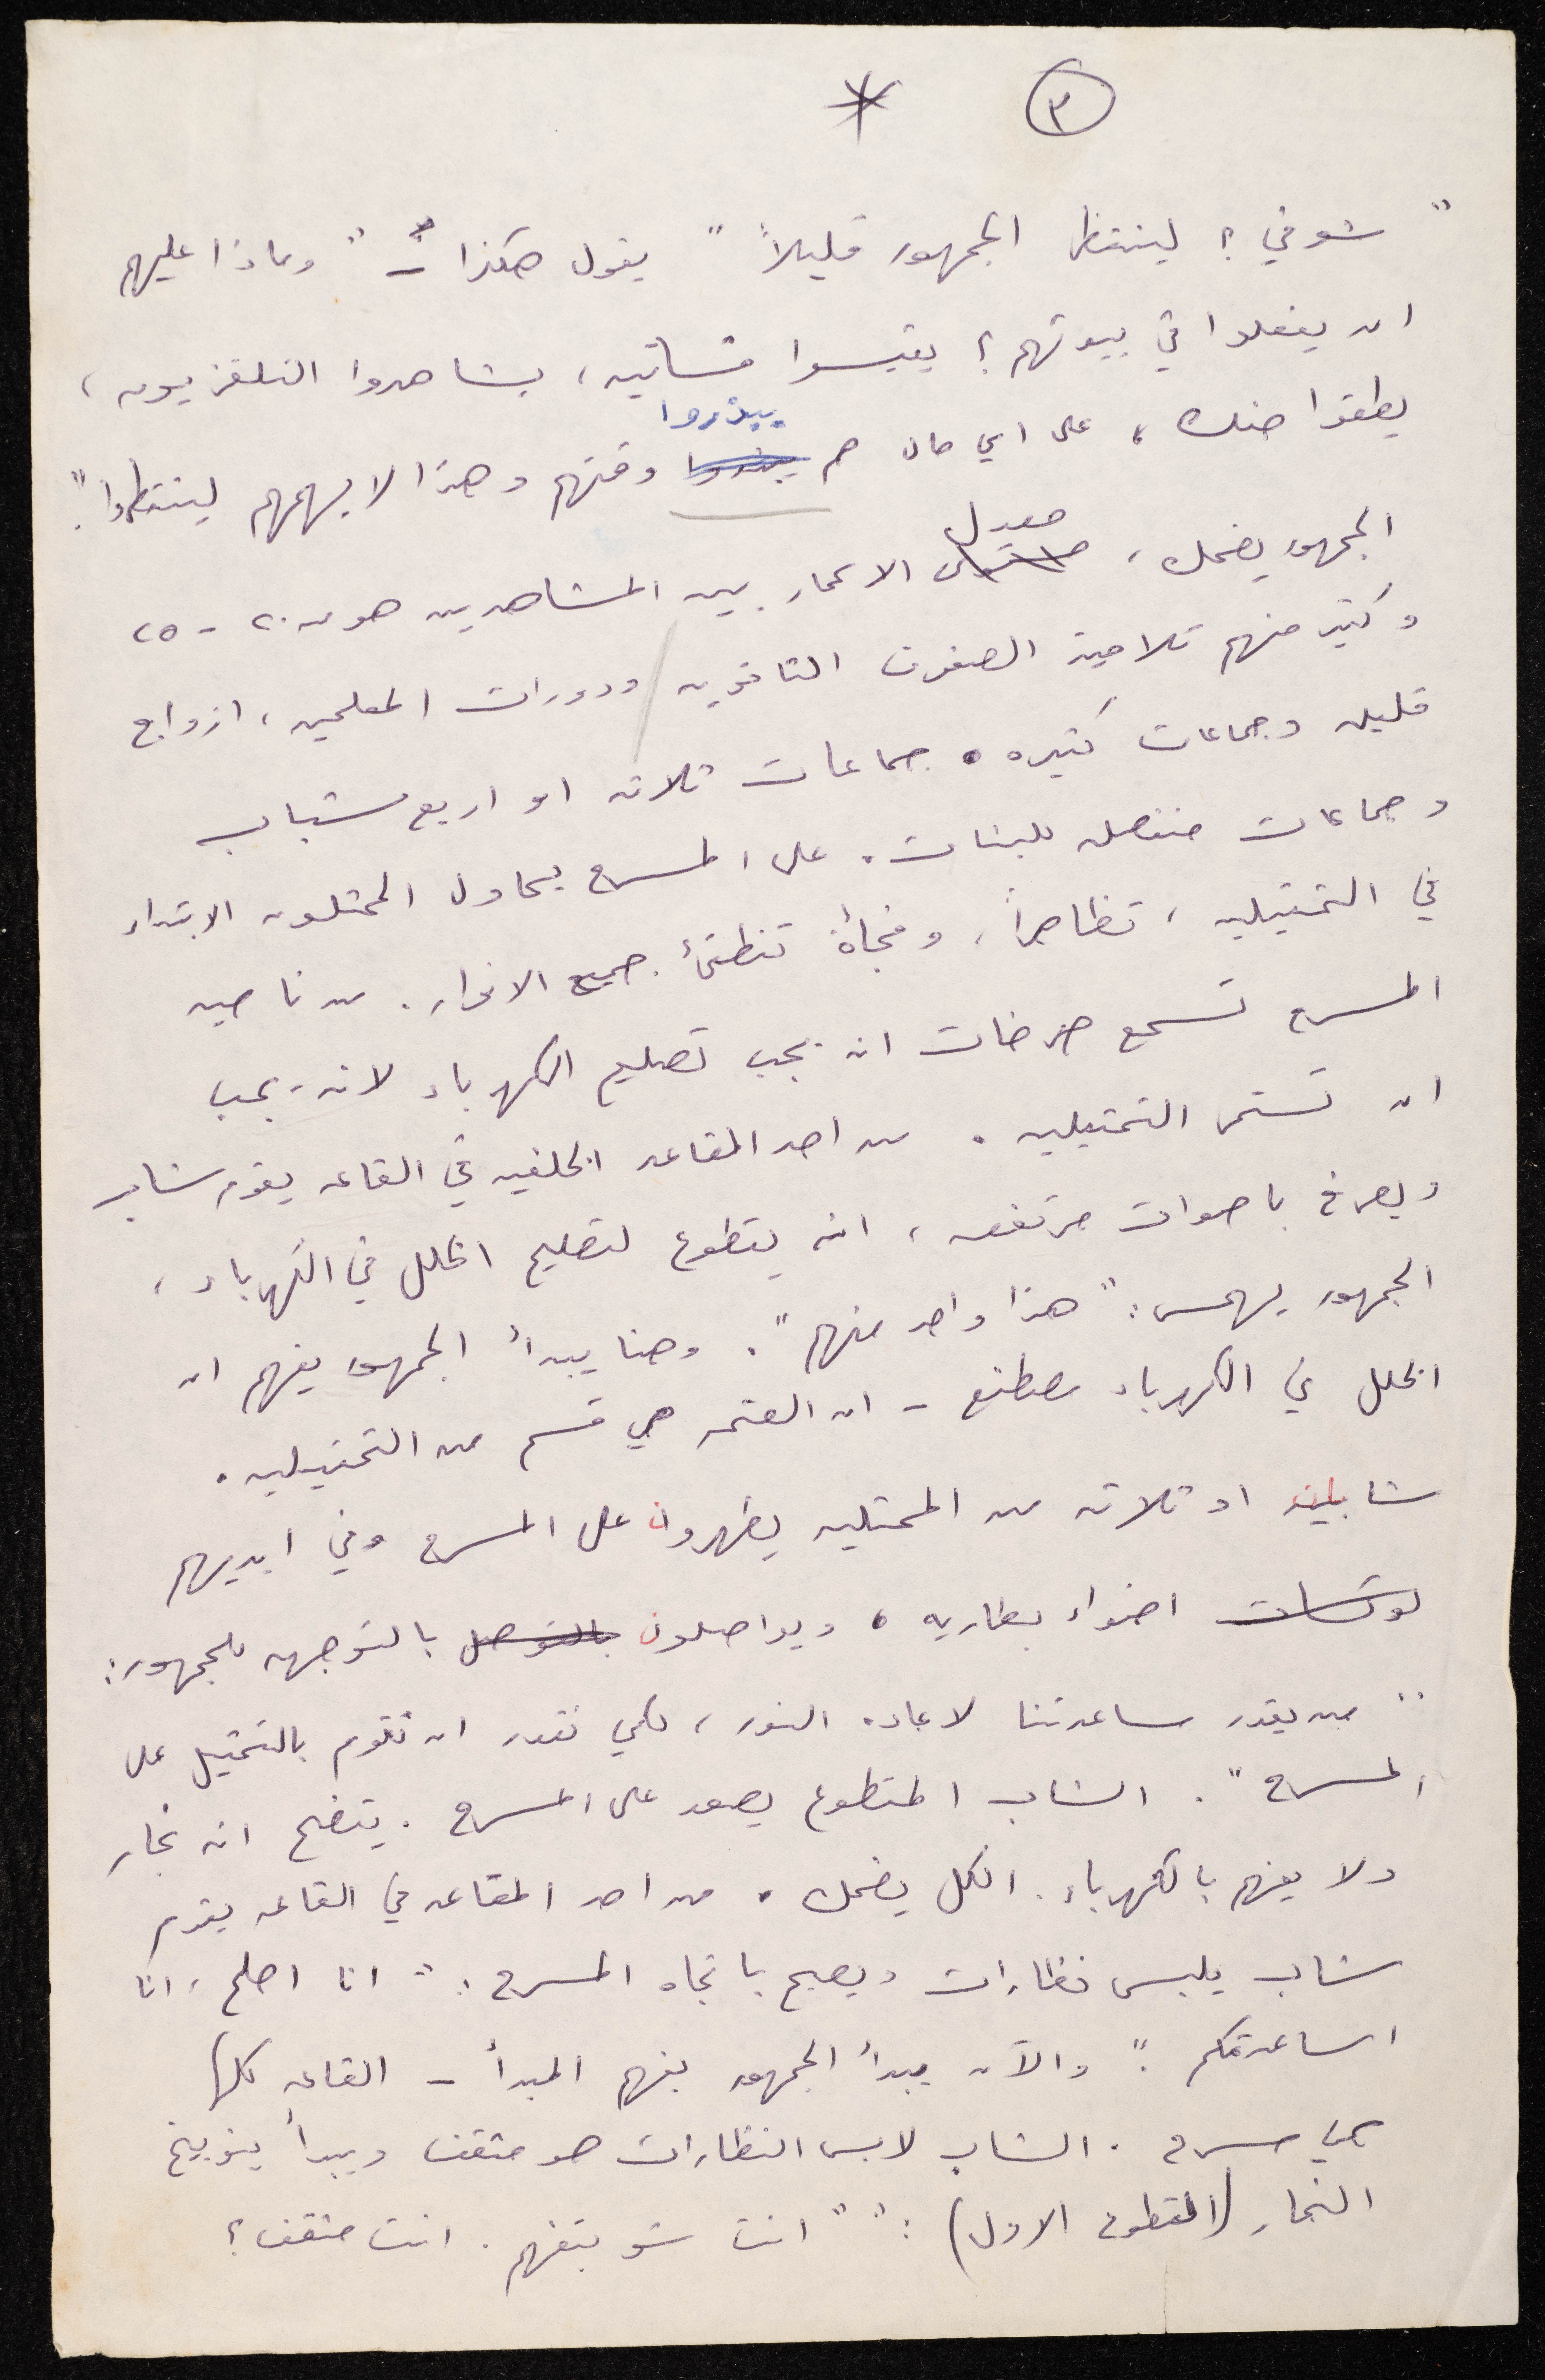 * ٣
" شو في ؟ لينتظر الجمهور قليلاً " يقول هكذا - " وماذا عليهم
ان يفعلوا في بيوتهم ؟ يقيسوا فساتين ، يشاهدوا التلفزيون ،
يطقوا حنك ، على اي حال هم يبذروا وقتهم وهذا لا يهمهم لينتظروا ".
الجمهور يضحك ، معدل الاعمار بين المشاهدين هو من ٢٠ - ٢٥
وكثير منهم تلاميذ الصفوف الثانويه ودورات المعلمين ، ازواج
قليله وجماعات كثيره . جماعات ثلاثه او اربع شباب
وجماعات منفصله للبنات . على المسرح يحاول الممثلون الابتداء
في التمثيليه ، تظاهراً ، وفجأة تنطفئ جميع الانوار . من ناحيه
المسرح تسمع صرخات انه يجب تصليح الكهرباء لانه يجب
ان تستمر التمثيليه . من احد المقاعد الخلفيه في القاعه يقوم شاب
ويصرخ باصوات مرتفعه ، انه يتطوع لتصليح الخلل في الكهرباء ،
الجمهور يهمس : " هذا واحد منهم " . وهنا يبدأ الجمهور يفهم ان
الخلل في الكهرباء مصطنع - ان العتمه هي قسم من التمثيليه .
شابين او ثلاثه من الممثلين يظهرون على المسرح وفي ايديهم
لوكسات اضواء بطاريه ، ويواصلون بالتوصل بالتوجه للجمهور :
" من يقدر مساعدتنا لاعاده النور ، لكي نقدر ان نقوم بالتمثيل على
المسرح " . الشاب المتطوع يصعد على المسرح . يتضح انه نجار
ولا يفهم بالكهرباء . الكل يضحك . من احد المقاعد في القاعه يقوم
شاب يلبس نظارات ويصيح باتجاه المسرح : " انا اصلح ، انا
اساعدكم " . والآن يبدأ الجمهور بفهم المبدأ - القاعه كلها
هي مسرح . الشاب لابس النظارات هو مثقف ويبدأ بتوبيخ
النجار ( المتطوع الاول ) : " انت شو بتفهم . انت مثقف ؟